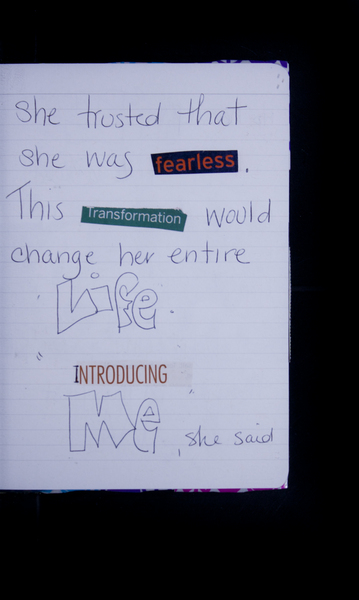 She trusted that
she was fearless.
This Transformation would
change her entire
Life.
"INTRODUCING
Me, she said